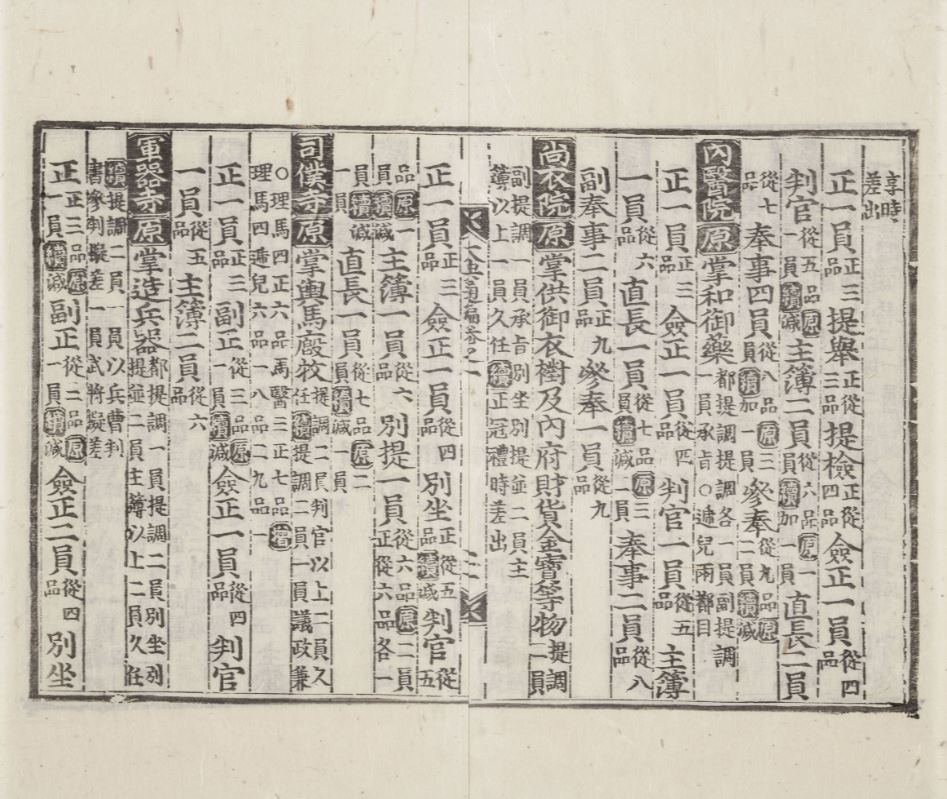 享時差出
正一員正三品提擧正從三品提檢正從四品僉正一員從四品
判官一員從五品原一員續減主簿二員從六品原一員續加一員直長二員
從七品奉事四員從八品原三員續加一員叅奉從九品原二員續減
內醫院原掌和御藥都提調提調各一員副提調一員承旨○遞兒兩都目
正一員正三品僉正一員從四品判官一員從五品主簿
一員從六品直長一員從七品原三員續減二員奉事二員從八品
副奉事二員正九品叅奉一員從九品
尙衣院原掌供御衣襨及內府財貨金寶等物提調二員
副提調一員承旨別坐別提並二員主簿以上一員久任續正冠禮時差出
正一員正三品僉正一員從四品別坐正從五品續減判官從五
品原一員續減主簿一員從六品別提一員從六品原二員正從六品各一
員續減直長一員從七品原二員續減一員
司僕寺原掌輿馬廐牧提調二員判官以上一員久任續提調二員一員議政兼
○理馬四正六品馬醫三正七品增理馬四遞兒六品一八品二九品一
正一員正三品副正從三品原一員續減僉正一員從四品判官
一員從五品主簿二員從六品
軍器寺原掌造兵器都提調一員提調二員別坐別提並二員主簿以上二員久任
續提調二員一員以兵曹判書叅判擬差一員武將擬差
正正三品原一員續減副正從三品原一員續減僉正二員從四品別坐
大典通編卷之一